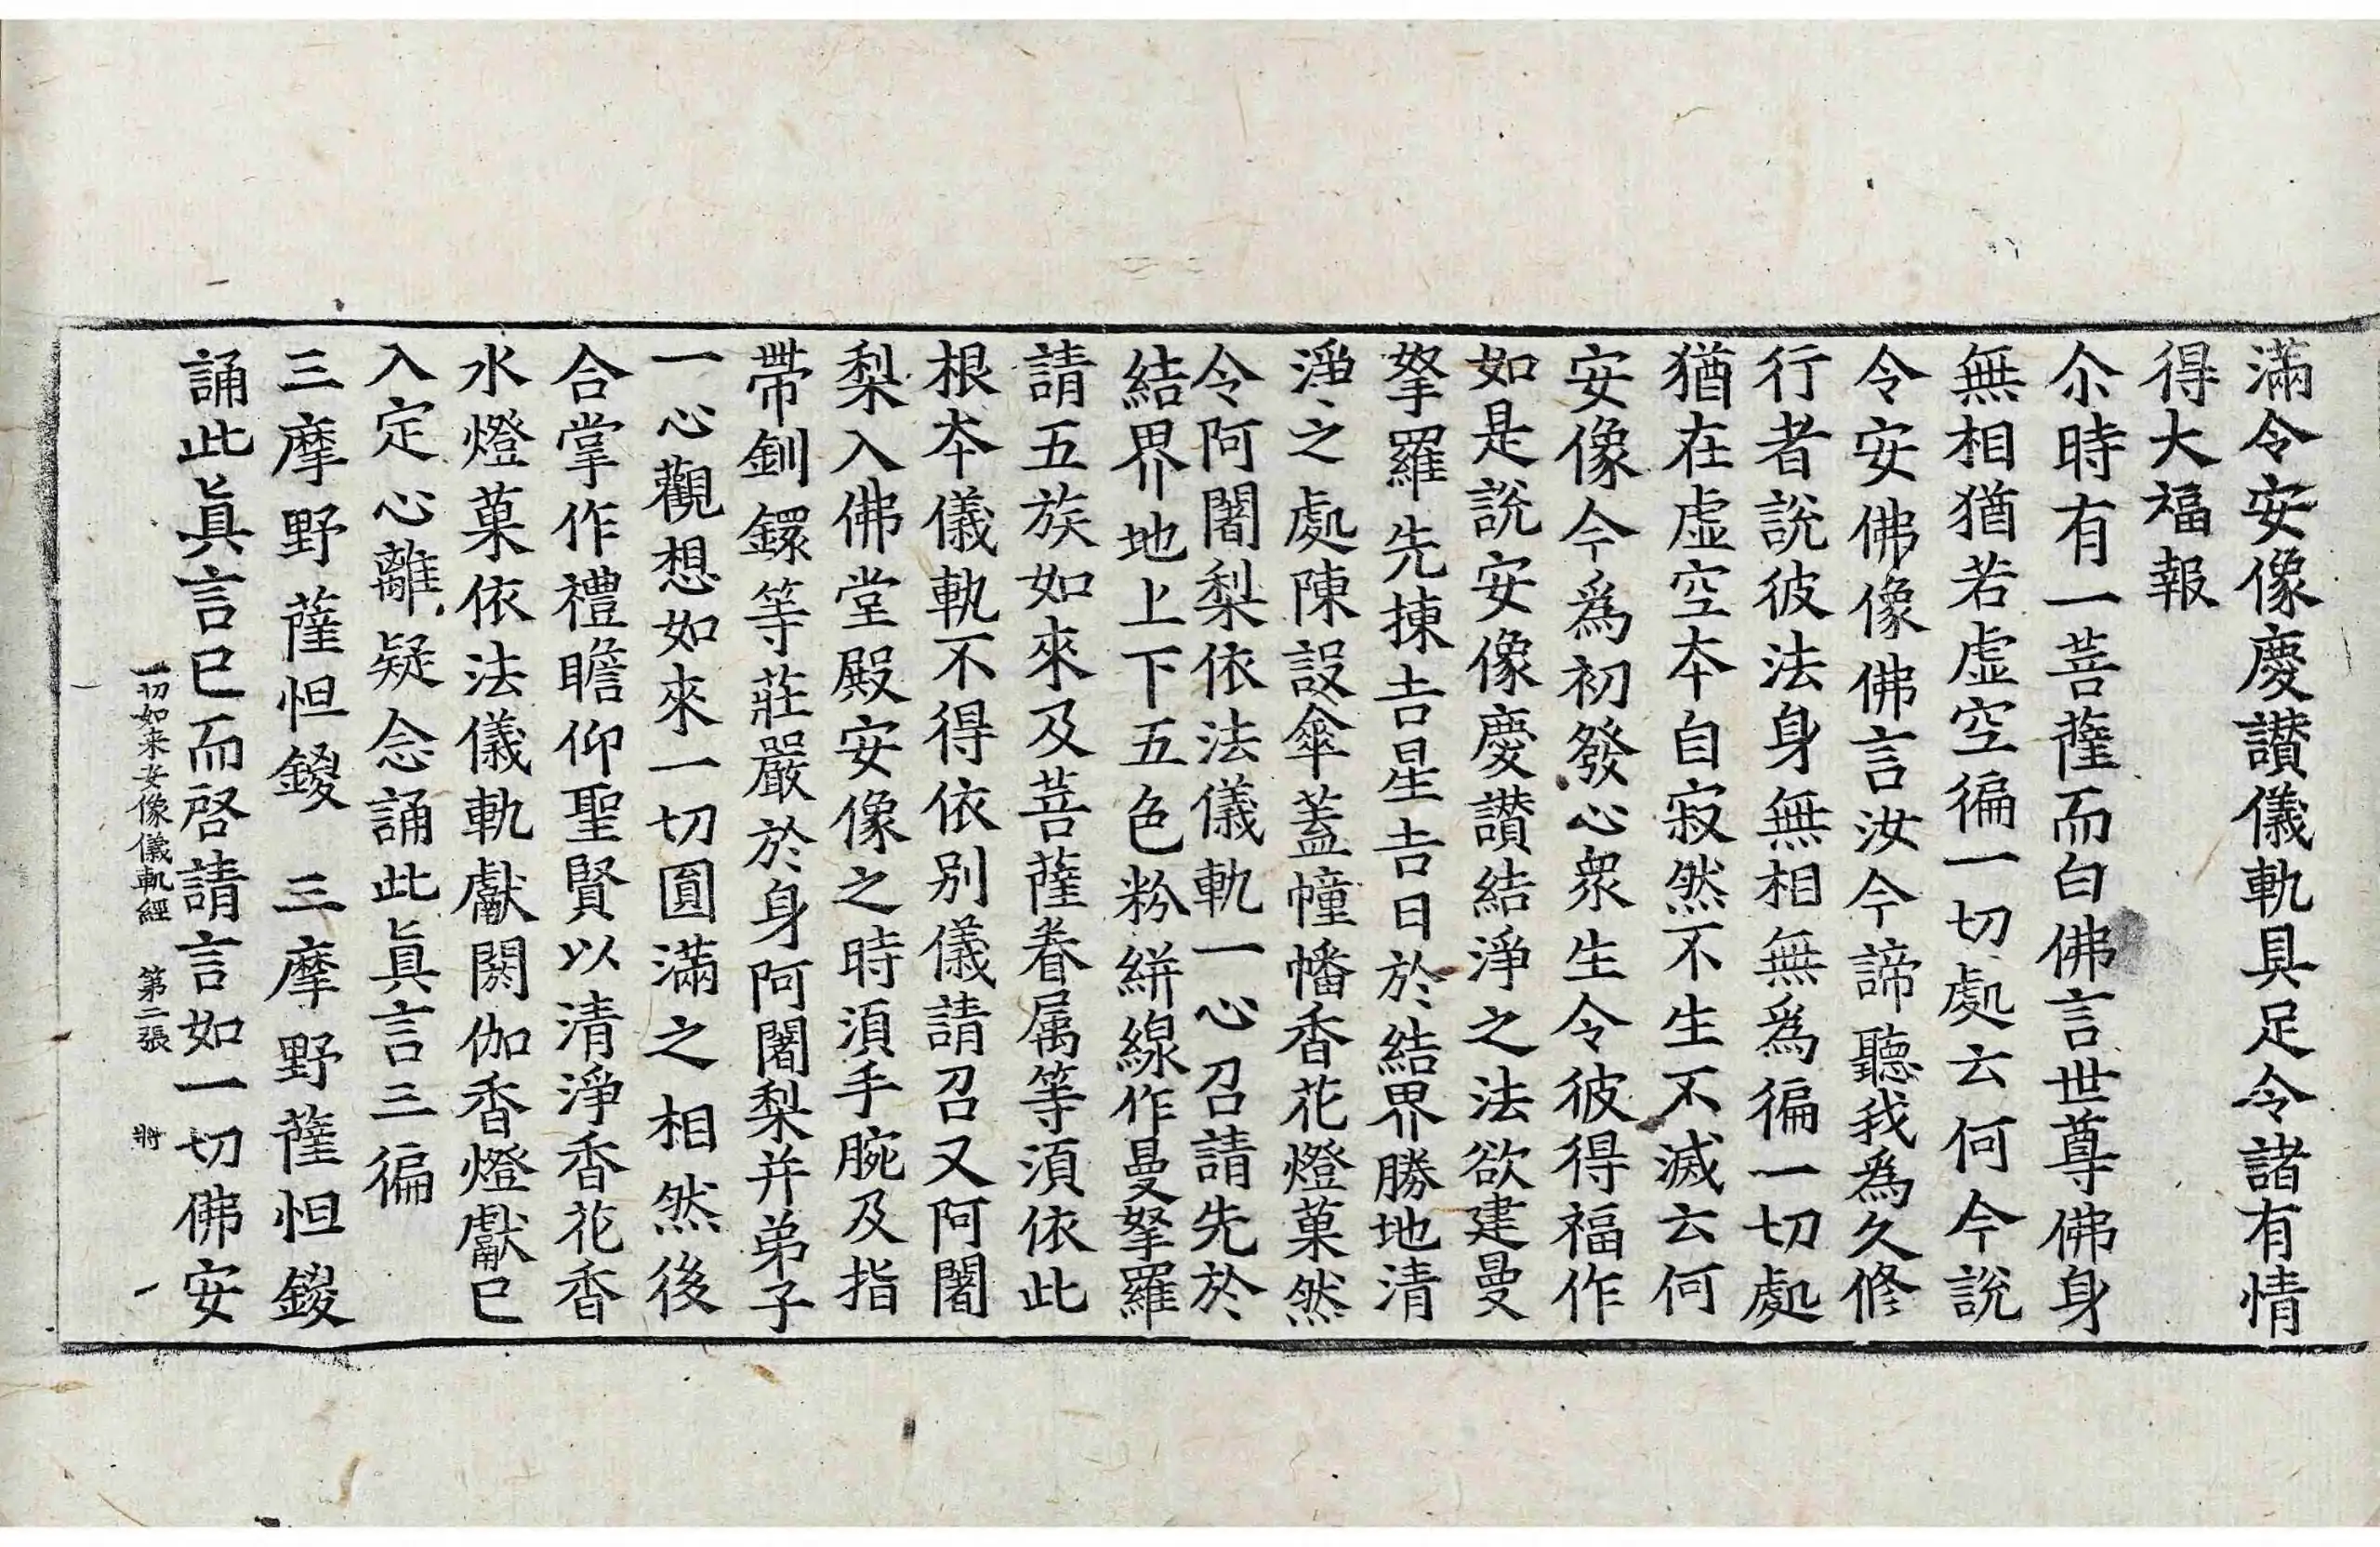 滿令安像慶讃儀軌具足令諸有情
得大福報
尒時有一菩薩而白佛言世尊佛身
無相猶若虛空徧一切處云何今說
令安佛像佛言汝今諦聽我爲久修
行者說彼法身無相無爲徧一切處
猶在虛空本自寂然不生不滅云何
安像今爲初發心衆生令彼得福作
如是說安像慶讃結淨之法欲建曼
拏羅先揀吉星吉日於結界勝地清
淨之處陳設傘蓋幢幡香花燈菓然
令阿闍梨依法儀軌一心召請先於
結界地上下五色粉絣線作曼拏羅
請五族如來及菩薩眷属等湏依此
根本儀軌不得依别儀請召又阿闍
梨入佛堂殿安像之時湏手腕及指
帶釧鐶等莊嚴於身阿闍梨并弟子
一心觀想如來一切圓滿之相然後
合掌作禮瞻仰聖賢以清淨香花香
水燈菓依法儀軌獻閼伽香燈獻已
入定心離疑念誦此眞言三徧
三摩野薩怛鑁　三摩野薩怛鑁
誦此眞言已而啓請言如一切佛安
一切如来安像儀軌經　第二張　將